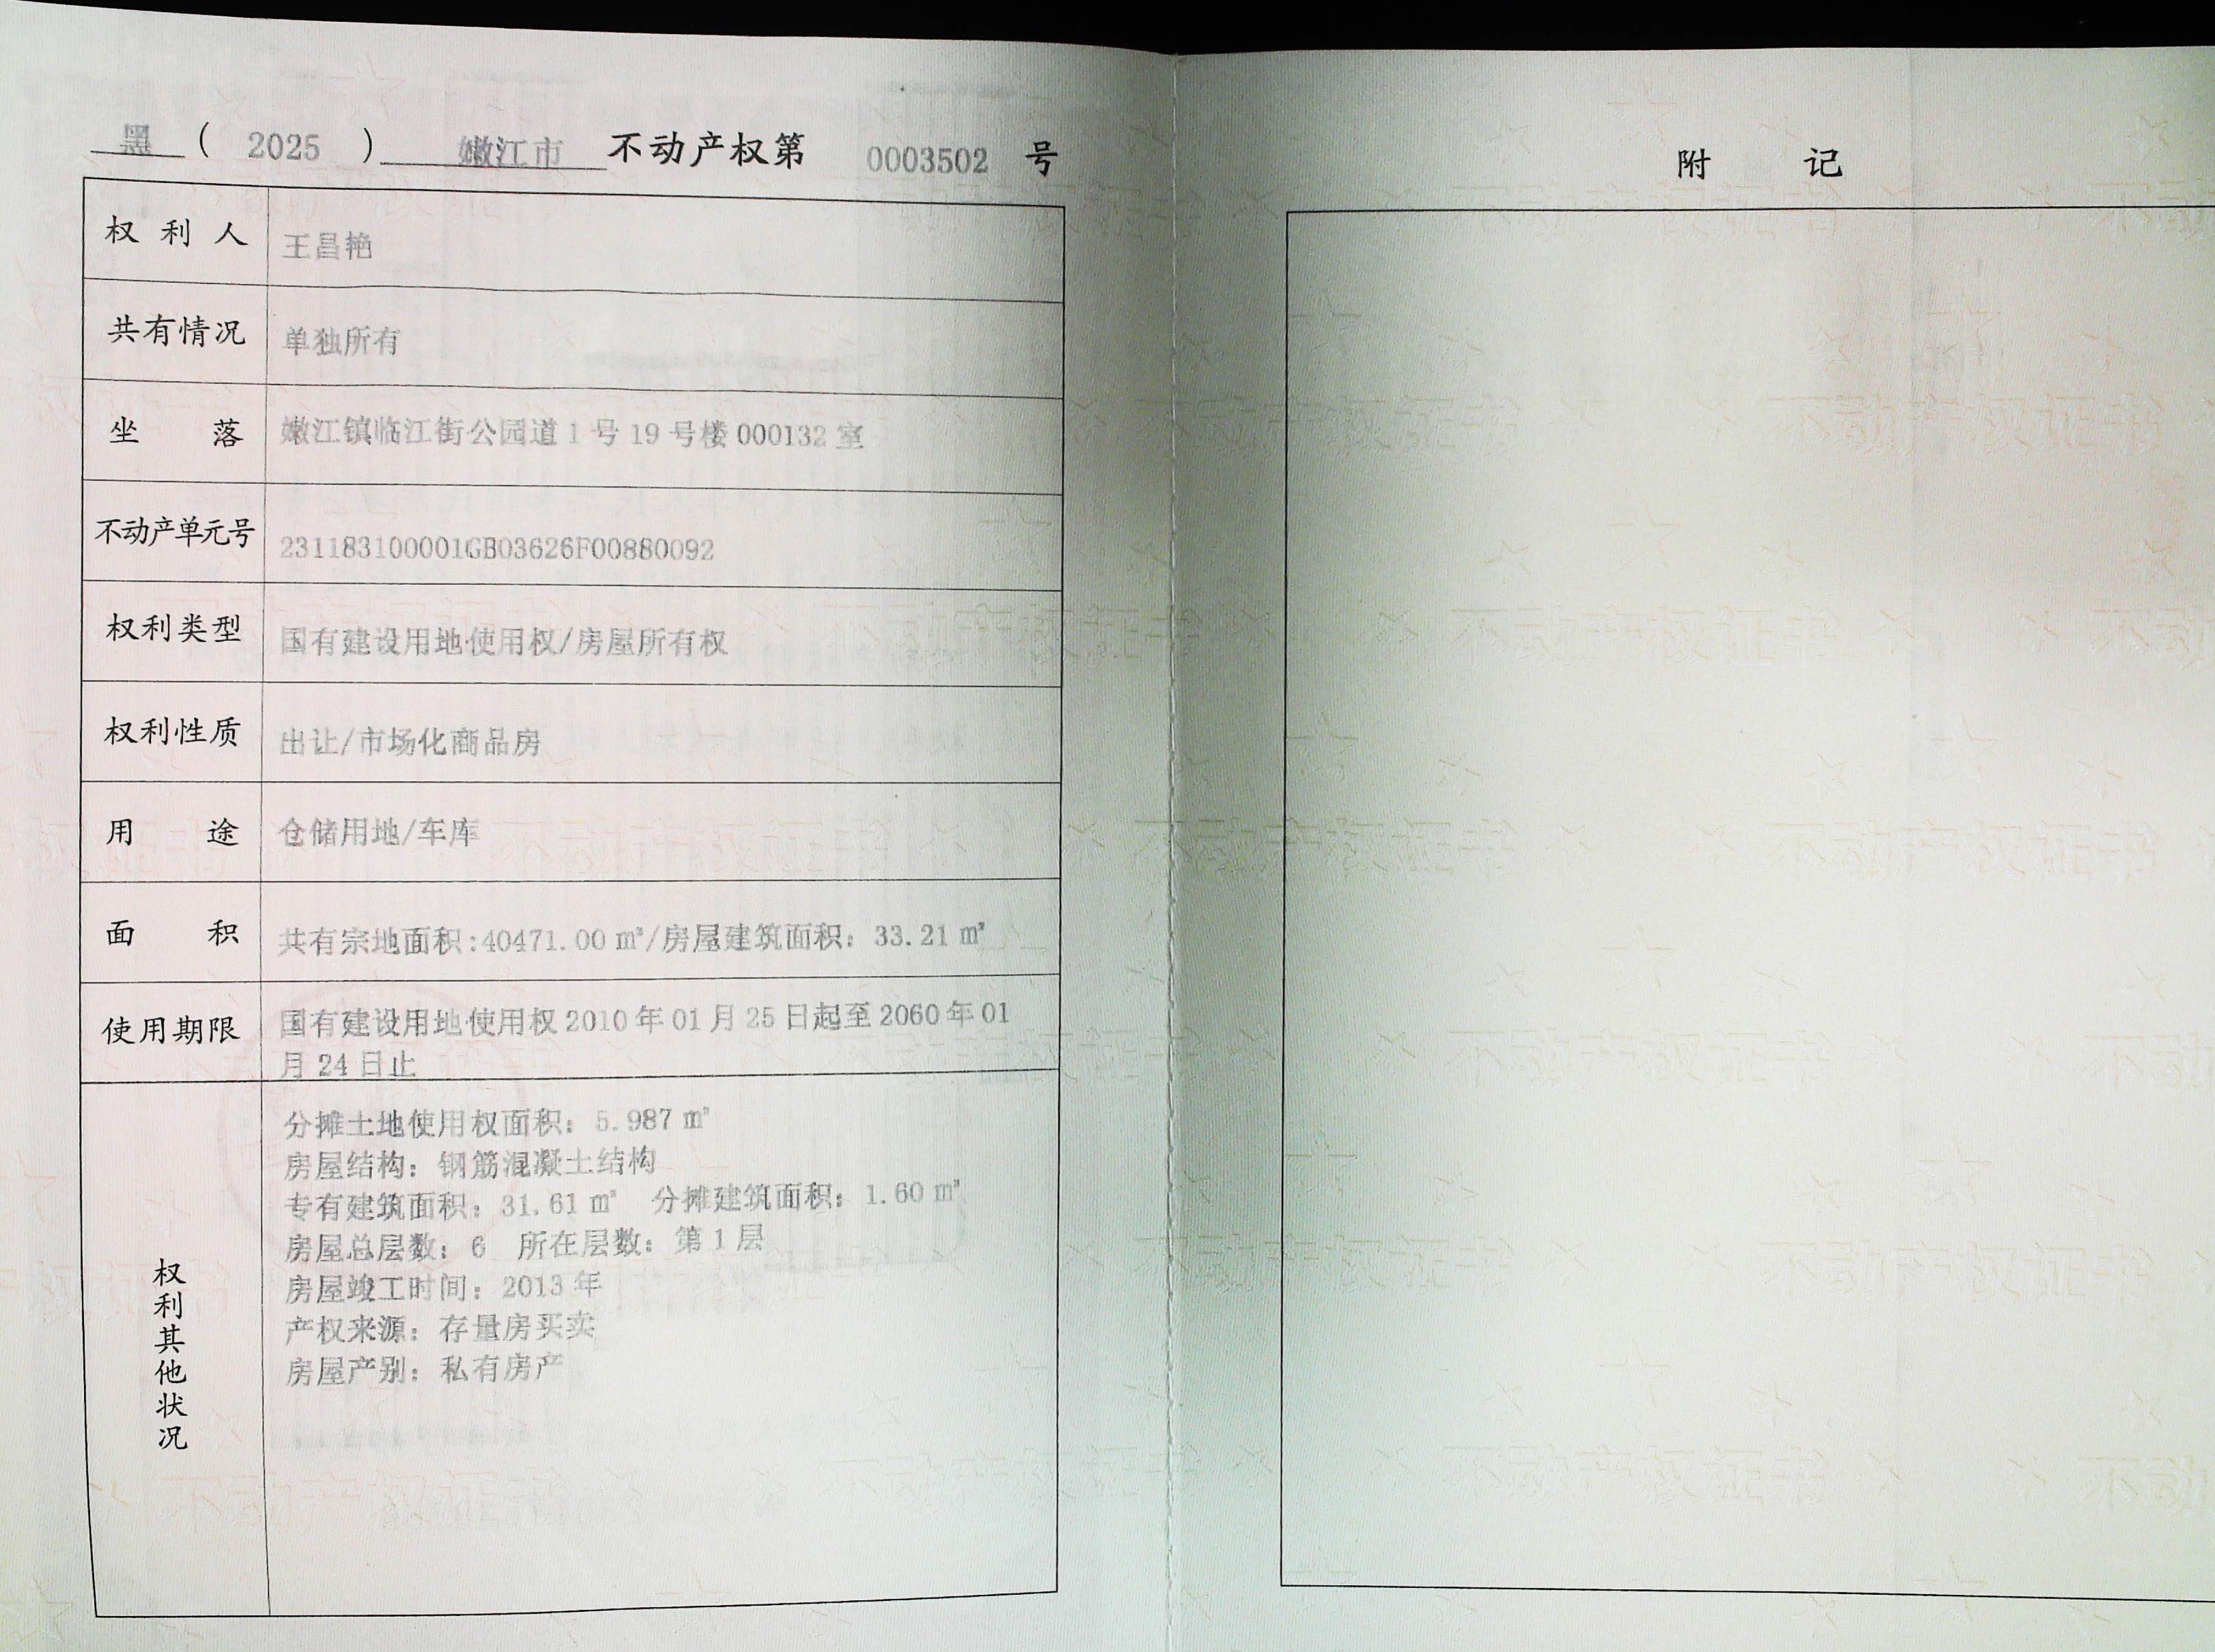 黑 ( 2025 ) 嫩江市 不动产权第 0003502 号
权利人 王昌艳
共有情况 单独所有
坐落 嫩江镇临江街公园道1号19号楼000132室
不动产单元号 231183100001GB03626F00880092
权利类型 国有建设用地使用权/房屋所有权
权利性质 出让/市场化商品房
用途 仓储用地/车库
面积 共有宗地面积:40471.00㎡/房屋建筑面积：33.21㎡
使用期限 国有建设用地使用权2010年01月25日起至2060年01
月24日止
权利其他状况
分摊土地使用权面积：5.987㎡
房屋结构：钢筋混凝土结构
专有建筑面积：31.61㎡ 分摊建筑面积：1.60㎡
房屋总层数：6 所在层数：第1层
房屋竣工时间：2013年
产权来源：存量房买卖
房屋产别：私有房产
附 记